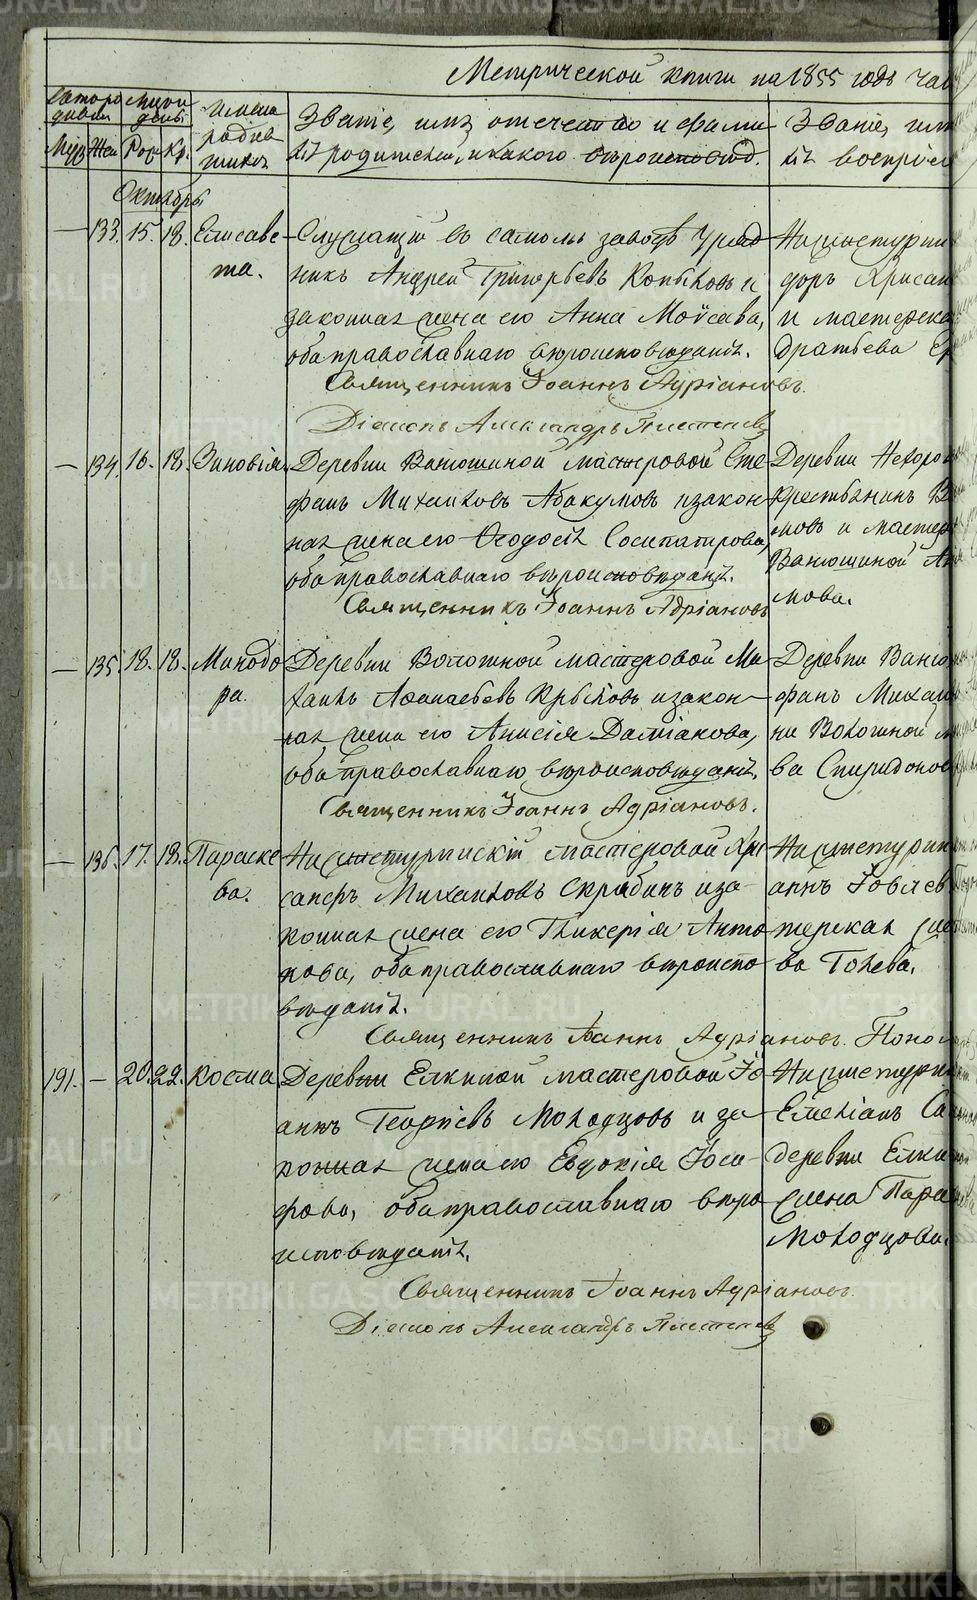 Метрической книги на 1855 годъ Час
Звание, имя, отечество и фами
лія родителей, и какого вѣроисповѣд.
Званіе, имя
Имена родив
Муж. Жен. Рож. Кр.
Октябрь
— 133. 15. 18. Елисаве
та.
Служащій въ самомъ заводѣ Уряд
никъ Андрей Григорьевъ Копыловъ и
законная жена его Анна Моисеева,
оба православнаго вѣроисповѣданія.
Священникъ Іоаннъ Адріановъ.
Діаконъ Александръ Плетеневъ
доръ Хрисан
и мастерска
дратьева
— 134. 16. 18. Зиновія
Деревни Ванюшиной мастеровой Сте
фанъ Михаиловъ Абакумовъ и закон
ная жена его Ѳеодосія Сосипатрова,
оба православнаго вѣроисповѣданія.
Священникъ Іоаннъ Адріановъ
Деревни Нехоро
Крестьянинъ В
мовъ и мастер
Ванюшиной
мова.
— 135. 18. 18. Минодо
ра.
Деревни Волошной мастеровой Ми
хаилъ Аѳанасьевъ и закон
ная жена его Анисія
оба православнаго вѣроисповѣданія.
Священникъ Іоаннъ Адріановъ.
Деревни Ваню
фанъ Михаи
ни Волошной м
ва Спиридонов
— 136. 17. 18. Параске
ва.
Нижнетуринскій мастеровой Хри
санфъ Михаиловъ Скрябинъ и за
конная жена его Гликерія Анто
нова, оба православнаго вѣроиспо
вѣданія.
Священникъ Іоаннъ Адріановъ. Поно
Нижнетурин
аннъ Іовлев
терская
ва Голева.
191. — 20. 22. Косма
Деревни Елкиной мастеровой Іо
аннъ Георгіевъ Молодцовъ и за
конная жена его Евдокія Іоси
фова, оба православнаго вѣро
исповѣданія.
Священникъ Іоаннъ Адріановъ.
Діаконъ Александръ Плетеневъ
Нижнетурин
Емеліанъ Са
деревни Елки
жена Пара
Молодцова.
METRIKI.GASO-URAL.RU